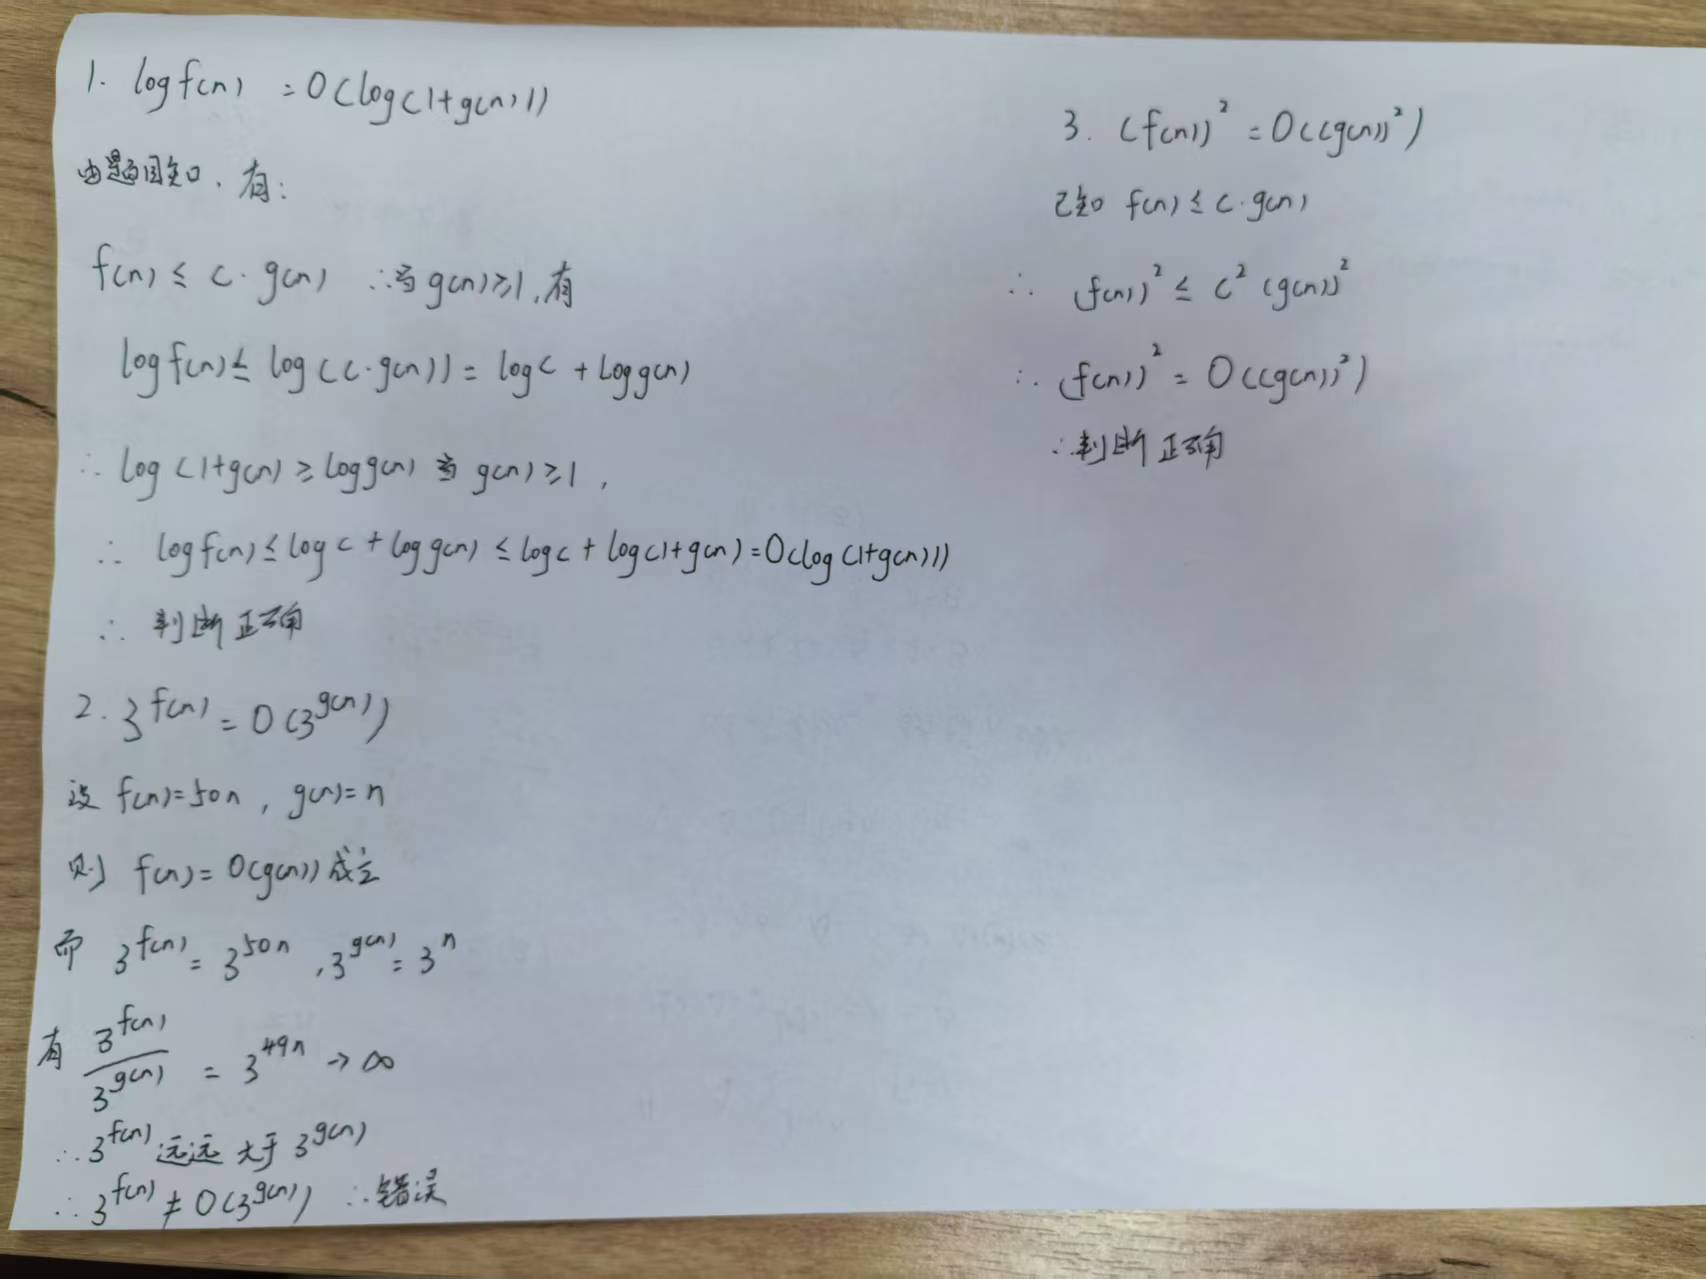 1. log f(n) = O(log(1+g(n)))
由题目知，有：
f(n) ≤ c·g(n) ∴当 g(n)≥1，有
log f(n) ≤ log(c·g(n)) = log c + log g(n)
∴ log(1+g(n) ≥ log g(n) 当 g(n)≥1，
∴ log f(n) ≤ log c + log g(n) ≤ log c + log(1+g(n) = O(log(1+g(n)))
∴ 判断正确
2. 3^f(n) = O(3^g(n))
设 f(n)=50n，g(n)=n
则 f(n)=O(g(n)) 成立
而 3^f(n) = 3^50n，3^g(n) = 3^n
有 3^f(n)/3^g(n) = 3^49n → ∞
∴ 3^f(n) 远远大于 3^g(n)
∴ 3^f(n) ≠ O(3^g(n)) ∴错误
3. (f(n))² = O((g(n))²)
已知 f(n) ≤ c·g(n)
∴ (f(n))² ≤ c² (g(n))²
∴ (f(n))² = O((g(n))²)
∴判断正确